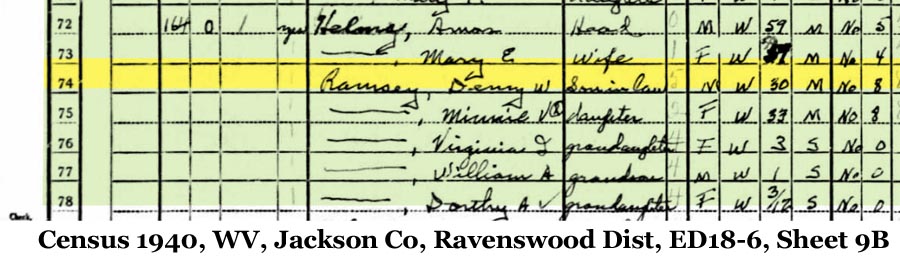 72 164 0 1 yes Helms, Amos Head 0 M W 59 M No 5
73 ———, Mary E Wife 1 F W M No 4
74 Ramsey, Denny W Son in law M W 30 M No 8
75 ———, Minnie V daughter F W 33 M No 8
76 ———, Virginia I grandaughter F W 3 S No 0
77 ———, William A grandson M W 1 S No 0
78 ———, Dorthy A grandaughter F W 3/12 S No 0
Check.
Census 1940, WV, Jackson Co, Ravenswood Dist, ED18-6, Sheet 9B